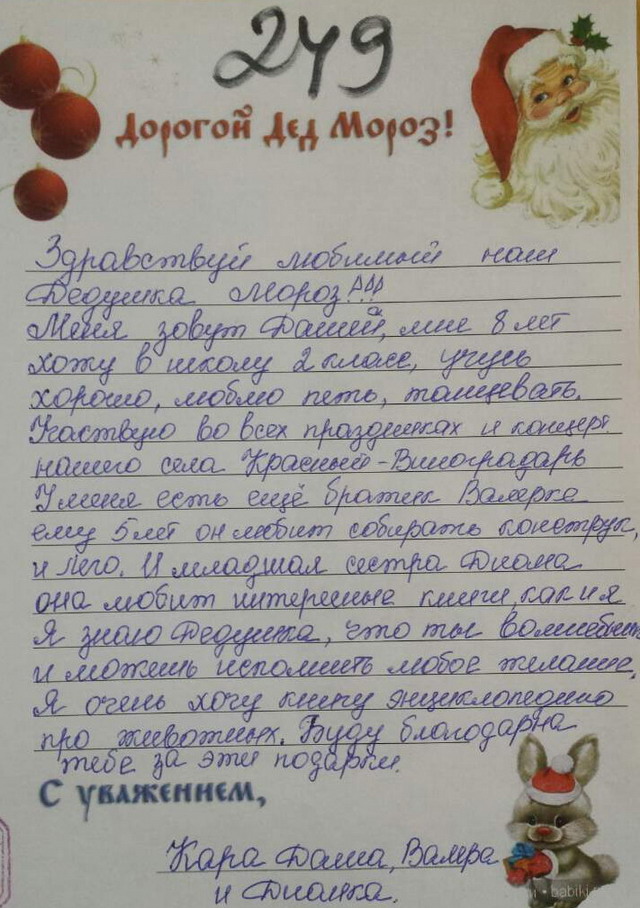 249
Дорогой Дед Мороз!
Здравствуй любимый наш
Дедушка Мороз!!!
Меня зовут Дашей, мне 8 лет
хожу в школу 2 класс, учусь
хорошо, люблю петь, танцевать.
Участвую во всех праздниках и концерт.
нашего села Красный-Виноградарь
У меня есть ещё братик Валерка
ему 5 лет он любит собирать конструк,
и Лего. И младшая сестра Диана
она любит интересные книги, как и я
Я знаю Дедушка, что ты волшебник
и можешь исполнить любое желание.
Я очень хочу книгу энциклопедию
про животных. Буду благодарна
тебе за эти подарки.
С уважением,
Кара Даша, Валера
и Дианка.
babiki